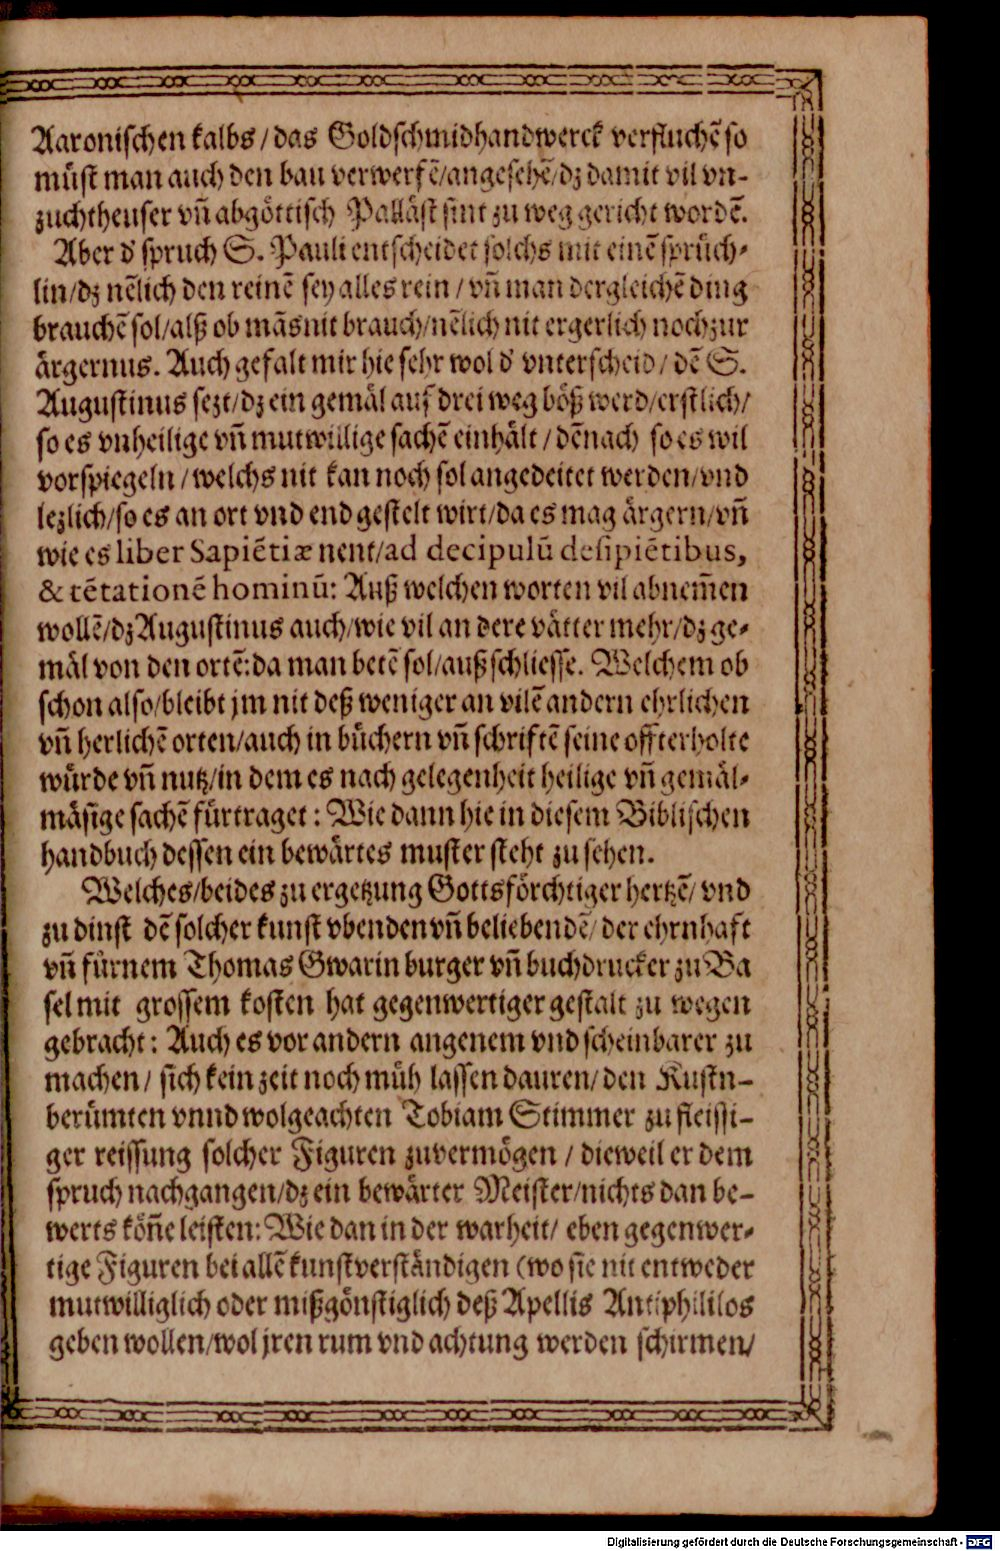 Aaronischen kalbs / das Goldschmidhandwerck verfluchẽ so
müst man auch den bau verwerfẽ/angesehẽ/dz damit vil vn-
zuchtheuser vñ abgöttisch Palläst sint zu weg gericht wordẽ.
Aber d' spruch S. Pauli entscheidet solchs mit einẽ sprüch-
lin/dz nẽlich den reinẽ sey alles rein / vñ man dergleichẽ ding
brauchẽ sol/alß ob mãs nit brauch/nẽlich nit ergerlich noch zur
ärgernus. Auch gefalt mir hie sehr wol d' vnterscheid / dẽ S.
Augustinus sezt/dz ein gemäl auf drei weg böß werd/erstlich/
so es vnheilige vñ mutwillige sachẽ einhält / dẽnach so es wil
vorspiegeln / welchs nit kan noch sol angedeitet werden/vnd
lezlich/so es an ort vnd end gestelt wirt/da es mag ärgern/vñ
wie es liber Sapiẽtiæ nent/ad decipulũ desipiẽtibus,
& tẽtationẽ hominũ: Auß welchen worten vil abnem̃en
wollẽ/dz Augustinus auch/wie vil an dere vätter mehr/dz ge-
mäl von den ortẽ: da man betẽ sol/auß schliesse. Welchem ob
schon also/bleibt jm nit deß weniger an vilẽ andern ehrlichen
vñ herlichẽ orten/auch in büchern vñ schriftẽ seine offterholte
würde vñ nutz/in dem es nach gelegenheit heilige vñ gemäl-
mäsige sachẽ fürtraget : Wie dann hie in diesem Biblischen
handbuch dessen ein bewärtes muster steht zu sehen.
Welches/beides zu ergetzung Gottsförchtiger hertzẽ/ vnd
zu dinst dẽ solcher kunst vbenden vñ beliebendẽ/ der ehrnhaft
vñ fürnem Thomas Gwarin burger vñ buchdrucker zu Ba
sel mit grossem kosten hat gegenwertiger gestalt zu wegen
gebracht : Auch es vor andern angenem vnd scheinbarer zu
machen / sich kein zeit noch müh lassen dauren/ den Kustn-
berümten vnnd wolgeachten Tobiam Stimmer zu fleissi-
ger reissung solcher Figuren zuvermögen / dieweil er dem
spruch nachgangen/dz ein bewärter Meister/nichts dan be-
werts köñe leisten: Wie dan in der warheit/ eben gegenwer-
tige Figuren bei allẽ kunstverständigen (wo sie nit entweder
mutwilliglich oder mißgönstiglich deß Apellis Antiphililos
geben wollen/wol jren rum vnd achtung werden schirmen/
Digitalisierung gefördert durch die Deutsche Forschungsgemeinschaft - DFG